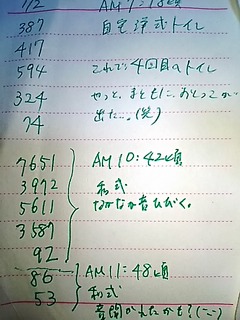 1/2 AM7:18頃
387 自宅洋式トイレ
417
594 これで、4回目のトイレ
324 やっと、まともに、おしっこが
74 出た…。(笑)
7651 AM10:42頃
3972 和式
5611 なかなか音ひびく。
3587
92
86 AM11:48頃
53 和式
音聞かれたかも?(-_-;)